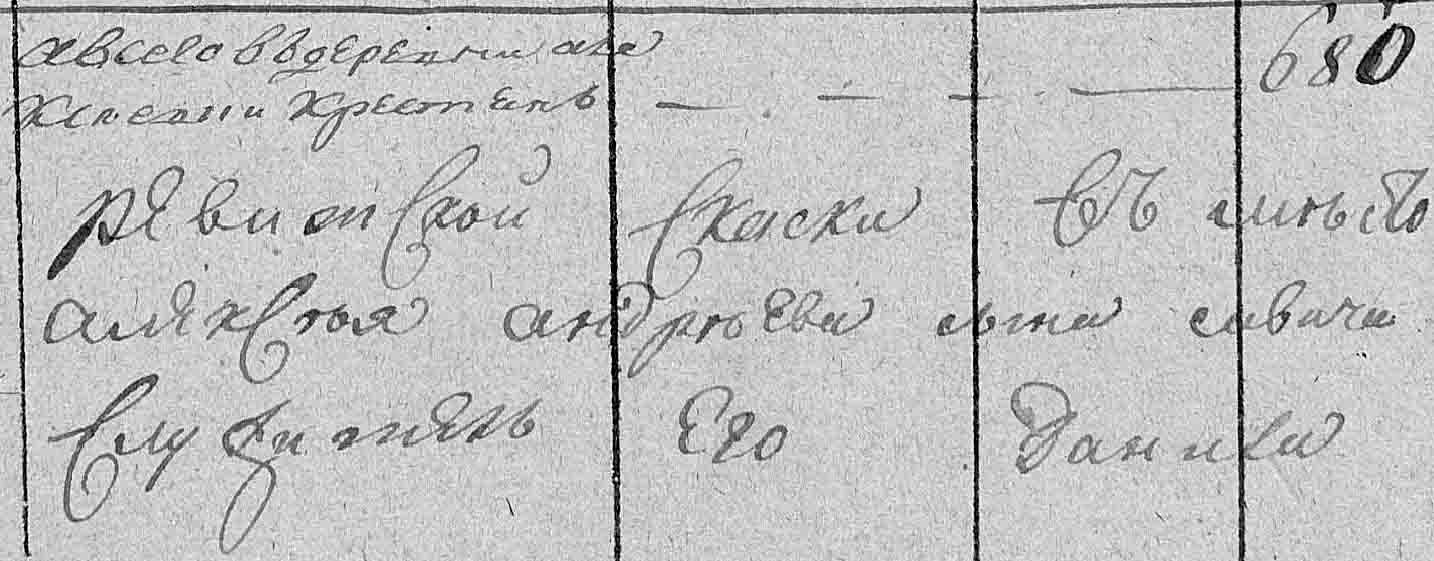 а всего в вдеревни ана
хапении крестянъ — — — — 680
ревитской скаски въ мѣсто
алексея андрѣева сына савича
служитель его Данила